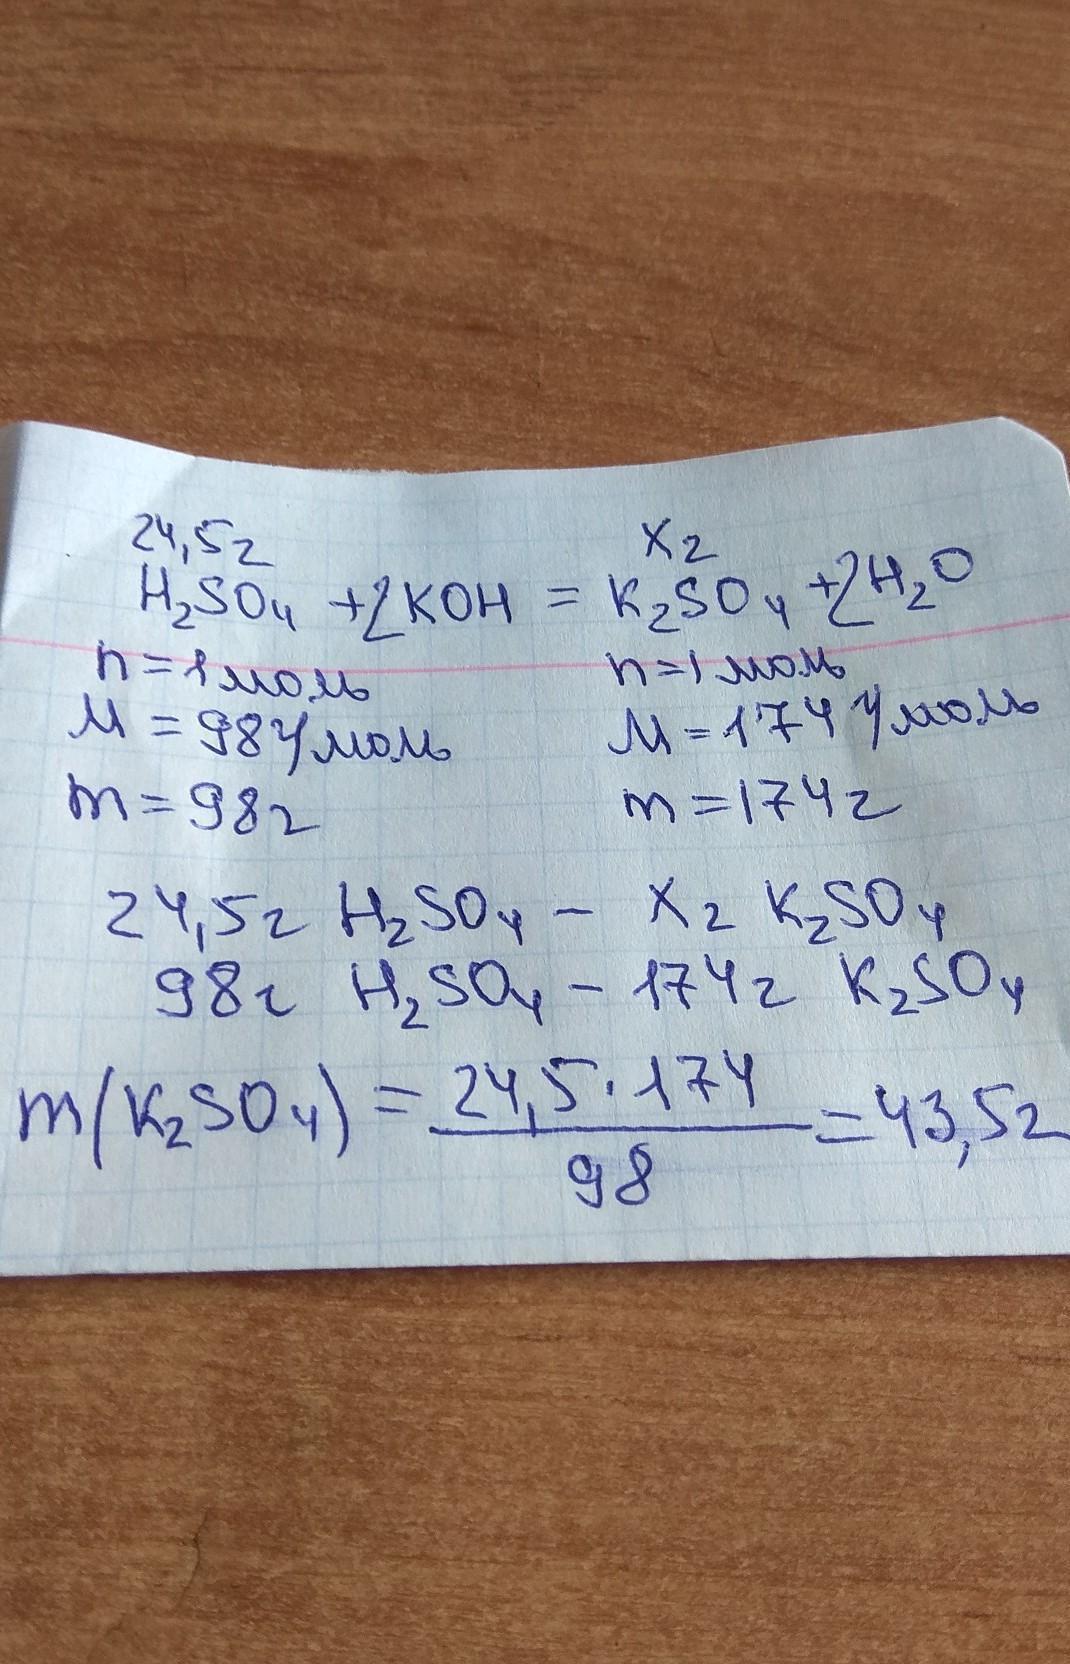 24,5г Xг
H₂SO₄ + 2KOH = K₂SO₄ + 2H₂O
n = 1 моль n = 1 моль
M = 98 г/моль M = 174 г/моль
m = 98г m = 174г
24,5г H₂SO₄ - Xг K₂SO₄
98г H₂SO₄ - 174г K₂SO₄
m(K₂SO₄) = 24,5 · 174 / 98 = 43,5г